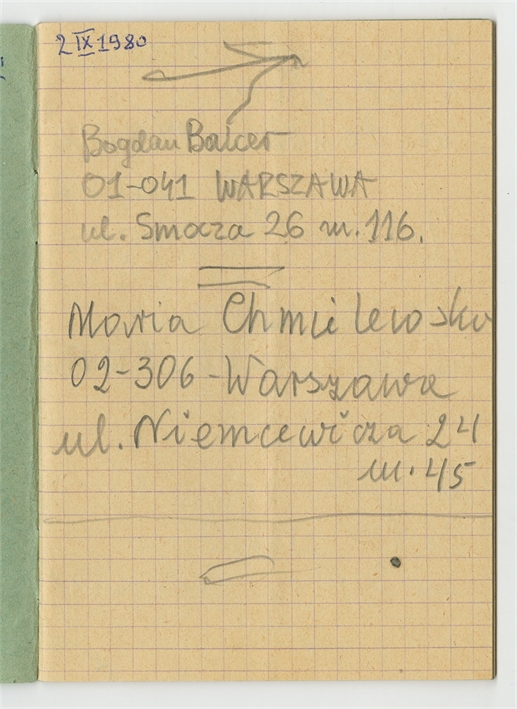 2 IX 1980
Bogdan Balcer
01-041 WARSZAWA
ul. Smocza 26 m. 116.
Maria Chmielewska
02-306-Warszawa
ul. Niemcewicza 24
m. 45